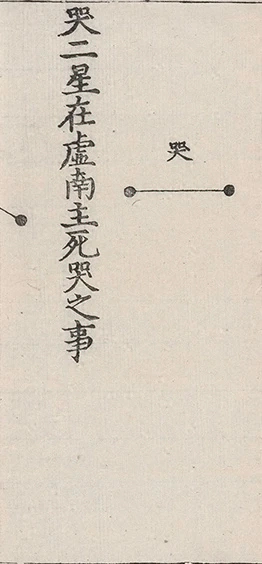 哭
哭二星在虛南主死哭之事